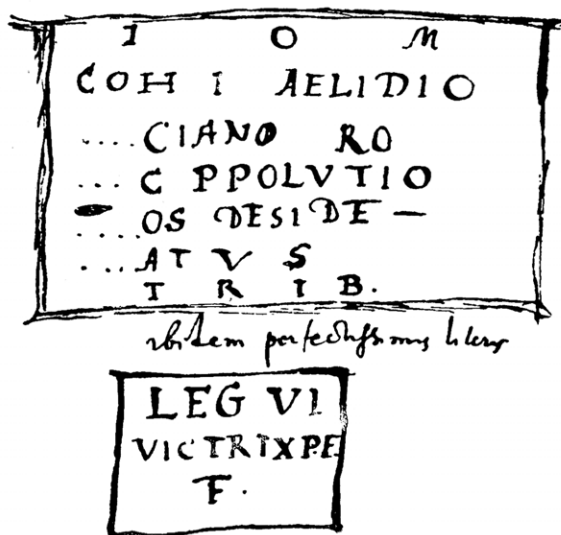 I O M
COH I AELIDIO
.... CIANO RO
... C PPOLVTIO
.... OS DESIDE —
.... ATVS
T R I B.
ibidem perfectissimis literis
LEG VI
VICTRIX P.F.
F.